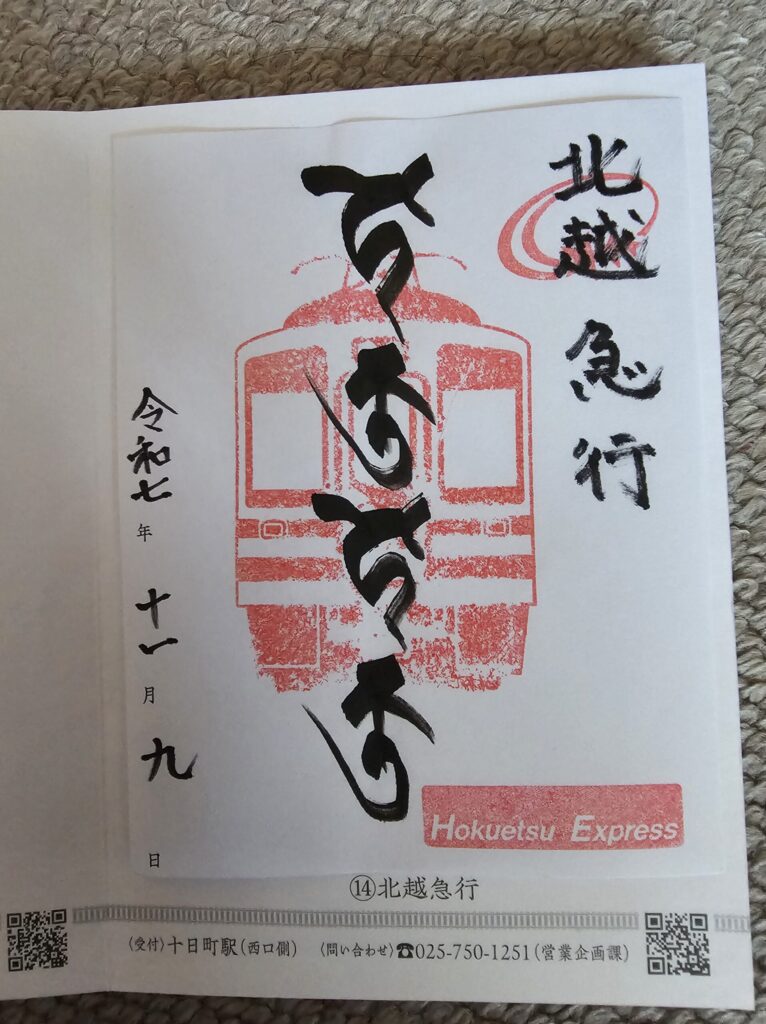 北越急行
令和七年十一月九日
Hokuetsu Express
⑭北越急行
〈受付〉十日町駅(西口側) 〈問い合わせ〉☎025-750-1251(営業企画課)